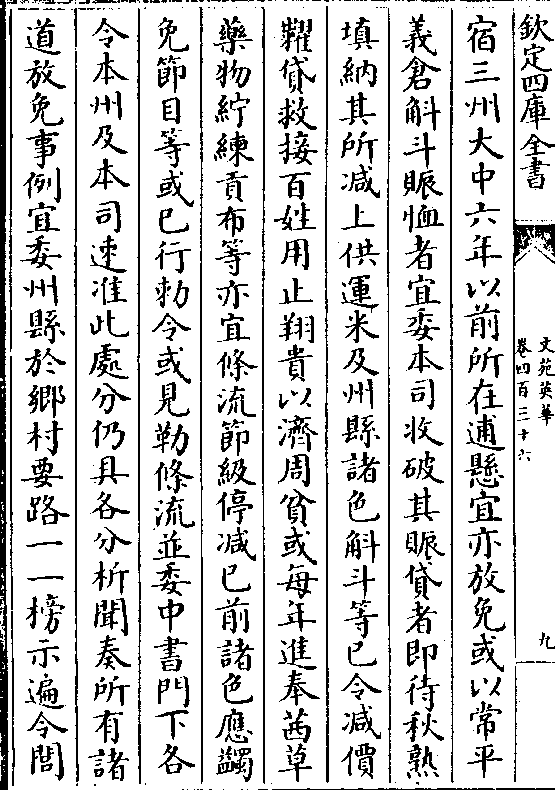 欽定四庫全書
文苑英華
卷四百三十六
九
宿三州大中六年以前所在逋懸宜亦放免或以常平
義倉斛斗賑恤者宜委本司收破其賑貸者即待秋熟
填納其所减上供運米及州縣諸色斛斗等已令减價
糶貸救接百姓用止翔貴以濟周貧或每年進奉茜草
藥物紵練貢布等亦宜條流節級停减已前諸色應蠲
免節目等或已行勅令或見勒條流並委中書門下各
令本州及本司速准此處分仍具各分析聞奏所有諸
道放免事例宜委州縣於鄉村要路一一榜示遍令閭